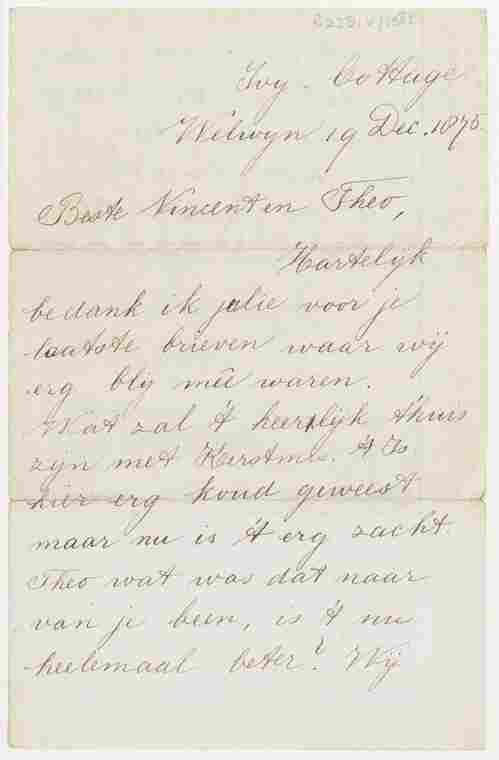 Ivy Cottage
Welwyn 19 Dec. 1875
Beste Vincent en Theo,
Hartelijk
bedank ik julie voor je
laatste brieven waar wij
erg blij meê waren.
Wat zal 't heerlijk thuis
zijn met Kerstmis. 't Is
hier erg koud geweest
maar nu is 't erg zacht
Theo wat was dat naar
van je been, is 't nu
heelemaal beter? Wij